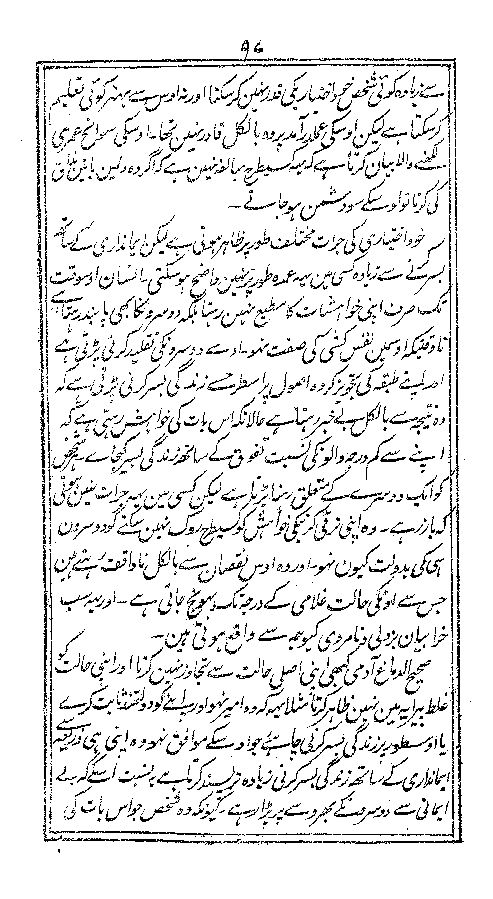 ۹۶
سے زیادہ کوئی شخص خود اختیاریکی قدر نہین کر سکتا اور نہ اوس سے بہتر کوئی تعلیم
کر سکتا ہے لیکن اوسکی عملدرآمد پر وہ بالکل قادر نہین تھا۔ اوسکی سوانح عمری
لکھنے والا بیان کرتا ہے کہ یہ کسیطرح مبالغہ نہین ہے کہ اگر وہ دلین باتین مذاق
کی کرتا تو اوسکے سو دشمن ہو جاتے۔
خود اختیاری کی جرات مختلف طور پر ظاہر ہوتی ہے لیکن ایمانداری کے ساتھ
بسر کرنے سے زیادہ کسی مین یہ عمدہ طور پر نہین واضح ہو سکتی۔ انسان اوسوقت
تک صرف اپنی خواہشات کا مطیع نہین رہتا بلکہ دوسرونکا بھی پابند رہتا ہے
تا وقتیکہ اوسمین نفس کشی کی صفت نہو۔ اوسے دوسرونکی تقلید کرنی پڑتی ہے
اور اپنے طبقہ کی تجویز کردہ اصول پر اسطرح سے زندگی بسر کرنی پڑتی ہے کہ
وہ نتیجہ سے بالکل بے خبر رہتا ہے حالانکہ اس بات کی خواہش رہتی ہے کہ
اپنے سے کم درجہ والونکی نسبت تفوق کے ساتھ زندگی بسر کیجاے۔ ہر شخص
کو ایک دوسرے کے متعلق رہنا پڑتا ہے لیکن کسی مین یہ جرات نہین ہوتی
کہ باز رہے۔ وہ اپنی ترقی کرنیکی خواہش کو کسیطرح روک نہین سکتے گو دوسرون
ہی کی بدولت کیون نہو۔ اور وہ اوس نقصان سے بالکل ناواقف رہتے ہین
جس سے اونکی حالت غلامی کے درجہ تک پہونچ جاتی ہے۔ اور یہ سب
خرابیان بزدلی و نامردی کیوجہ سے واقع ہوتی ہین۔
صحیح الدماغ آدمی کبھی اپنی اصلی حالت سے تجاوز نہین کرتا اور اپنی حالت کو
غلط پیرایہ مین نہین ظاہر کرتا مثلا یہ کہ وہ امیر نہو اور اپنے کو دولتمند ثابت کرے
یا اوسطور پر زندگی بسر کرنی چاہئے جو اوسکے موافق نہو وہ اپنی ہی ذریعہ سے
ایمانداری کے ساتھ زندگی بسر کرنی زیادہ تر پسند کرتا ہے بہ نسبت اسکے کہ بے
ایمانی سے دوسرونکے بھروسے پر پڑا رہے۔ کیونکہ وہ شخص جو اس بات کی